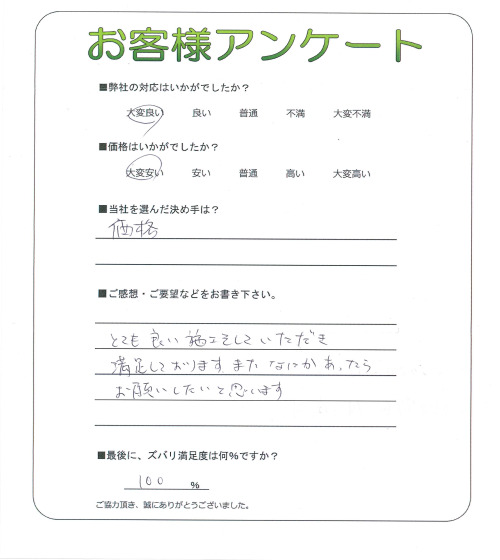 お客様アンケート
■弊社の対応はいかがでしたか？
大変良い 良い 普通 不満 大変不満
■価格はいかがでしたか？
大変安い 安い 普通 高い 大変高い
■当社を選んだ決め手は？
価格
■ご感想・ご要望などをお書き下さい。
とても良い施工をしていただき
満足しております またなにかあったら
お願いしたいと思います
■最後に、ズバリ満足度は何％ですか？
100 ％
ご協力頂き、誠にありがとうございました。